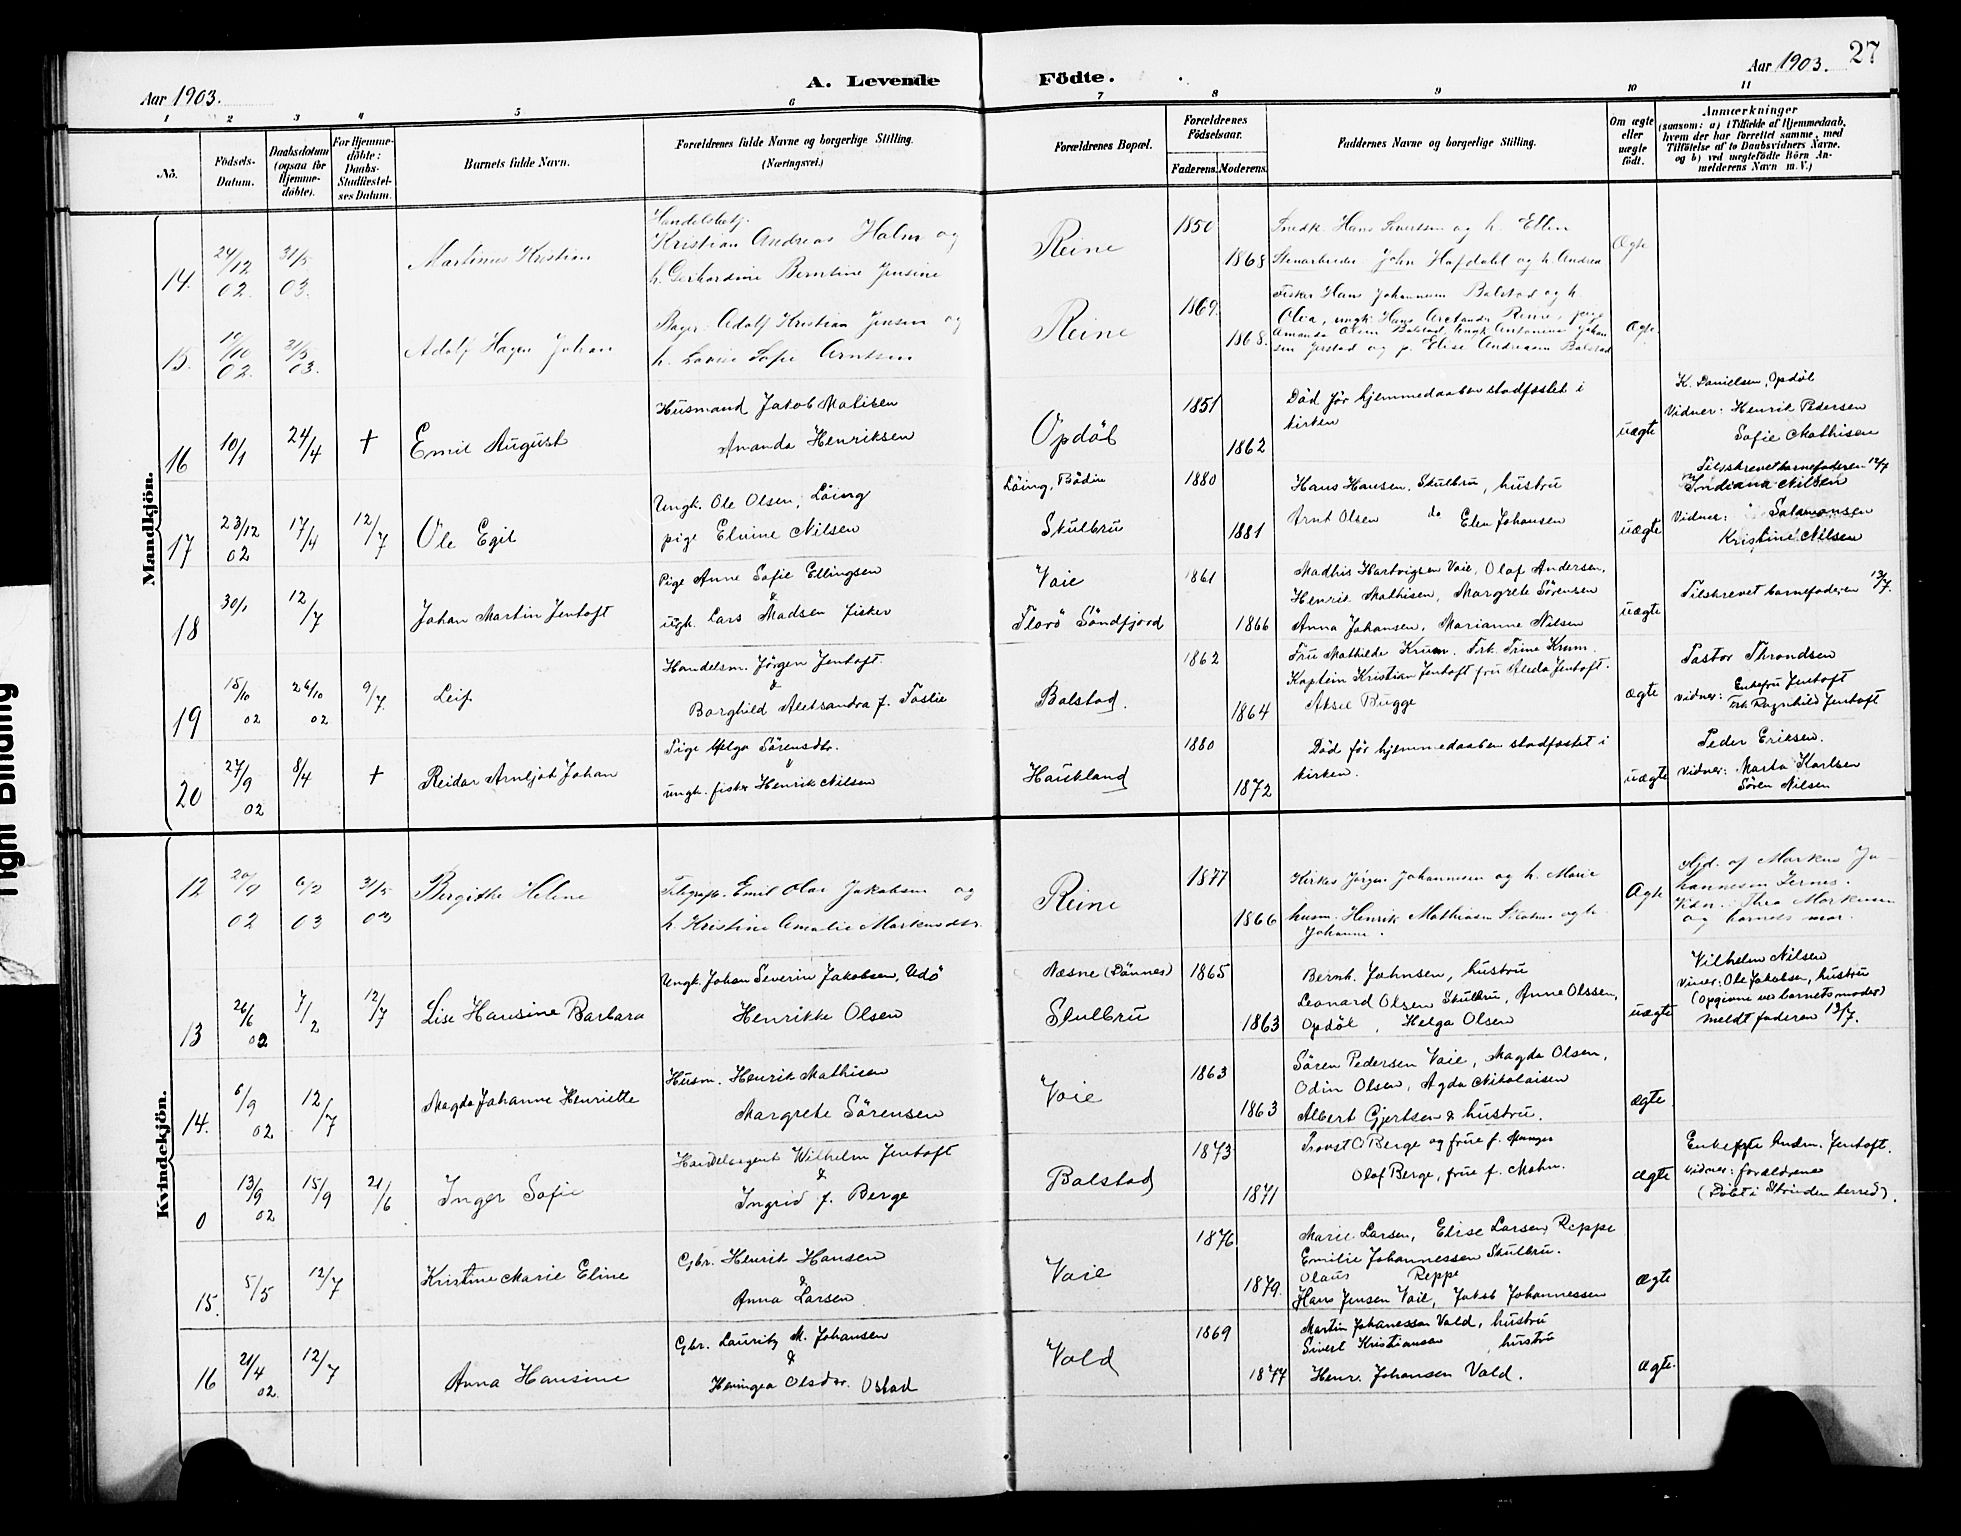 27
Aar 1903.
A. Levende Födte.
Aar 1903.
1 2 3 4 5 6 7 8 9 10 11
No.
Födsels-Datum.
Daabsdatum (ogsaa for Hjemmedöbte).
For Hjemmedöbte: Daabs-Stadfæstelses Datum.
Barnets fulde Navn.
Forældrenes fulde Navne og borgerlige Stilling. (Næringsvei.)
Forældrenes Bopæl.
Forældrenes Födselsaar.
Faderens. Moderens.
Faddernes Navne og borgerlige Stilling.
Om ægte eller uægte födt.
Anmærkninger
(saasom: a) i Tilfælde af Hjemmedaab, hvem der har forrettet samme, med Tilföielse af to Daabsvidners Navne, og b) ved uægtefödte Börn Anmelderens Navn m. V.)
Mandkjön.
14. 24/12 02. 31/5 03. Martinus Kristian
Kristian Andreas Holm og
h. Gerhardine Berntine Jensine
Reine 1850 1868
Snedk. Hans Sivertsen og h. Ellen
Stenarbeider John Hafdahl og h. Andrea
Ægte
15. 10/10 02. 31/5 03. Adolf Hagen Johan
Bager Adolf Kristian Jensen og
h. Lovise Sofie Arntsen
Reine 1869. 1868.
Fisker Hans Johannesen Balstad og h.
Olea, ungk. Hans Reine, pige
Amanda Olsen Balstad, Ungk Antonius Johansen Jerstad og p. Elise Andreasen Balstad
Ægte
16 10/1 24/4 + Emil August
Husmand Jakob Matisen
Amanda Henriksen
Opdöl 1851 1862
Död för hjemmedaaben stadfæstet i
kirken
uægte
K. Danielsen, Opdöl
Vidner: Henrik Pedersen
Sofie Mathisen
17 23/12 02 17/4 12/7 Ole Egil
Ungk. Ole Olsen, Löing
pige Elvine Nilsen
Löing, Bodin
Skulbru
1880 1881
Hans Hansen, Skulbru, hustru
Arnt Olsen do Elen Johansen
uægte
Tilskrevet barnefaderen 12/7
Indiana Nilsen
Vidner: Salamonsen
Kristine Nilsen
18 30/1 12/7 Johan Martin Jentoft
Pige Anne Sofie Ellingsen
&
ugk. Lars Madsen fisker
Vaie
Florö Söndfjord
1861 1866
Madhis Hartvigsen Vaie, Olaf Andersen,
Henrik Mathisen, Margrete Sörensen
Anna Johansen, Marianne Nilsen
uægte
Tilskrevet barnefaderen 13/7.
19 15/10 02 26/10 02 9/7 Leif
Handelsm. Jörgen Jentoft
&
Borghild Aleksandra f. Taslie
Balstad. 1862 1864
Fru Mathilde Krum. Frk. Trine Krum.
Kaptein Kristian Jentoft fru Aleda Jentoft.
Aksel Bugge
ægte
Pastor Throndsen
vidner: Enkefru Jentoft
Frk Ragnhild Jentoft
20 27/9 02 8/4 + Reidar Arnljot Johan
Pige Helga Sörensdtr.
ungk. fisker Henrik Nilsen
Haukland 1880 1872
Död för hjemmedaaben stadfæstet i
kirken.
uægte
Peder Eriksen.
Vidner: Marta Karlsen
Sören Nilsen
Kvindekjön.
12 20/9 02 6/2 03 31/5 03 Birgithe Helene
Telegrafb. Emil Olai Jakobsen og
h. Kristine Amalie Markusdtr.
Reine 1877 1866
Kirkes. Jörgen Johannesen og h. Marie
husm. Henrik Mathiasen og h.
Johanne.
Ægte
Hjd. af Markus Johannesen Ternes.
Vidn. Thea Markusen
og barnets mor.
13 26/6 02 7/2 12/7 Lise Hansine Barbara
Ungk. Johan Severin Jakobsen, Udö
Henrikke Olsen
Næsne (Dönnes)
Skulbru
1865 1863
Bernh. Jahnsen, hustru
Leonard Olsen Skulbru, Anne Olssen,
Opdöl, Helga Olsen
uægte
Vilhelm Nilsen
Vidner: Ole Jakobsen, hustru
(Opgivne ved barnets moder)
meldt faderen 13/7.
14. 6/9 02 12/7 Magda Johanne Henriette
Husm. Henrik Mathisen
Margrete Sörensen
Vaie 1863 1863
Sören Pedersen Vaie, Magda Olsen,
Odin Olsen, Agda Nikolaisen
Albert Gjertsen & hustru.
ægte
0 13/9 02 15/9 21/6 Inger Sofie
Handelsagent Wilhelm Jentoft
&
Ingrid f. Berge
Balstad 1873 1871
Provst O Berge og frue f. Munger
Olaf Berge, frue f. Mohn.
ægte
Enkefru Andr. Jentoft.
vidner: forældrene
(Döbt i Strinden herred).
15. 5/5 12/7 Kristine Marie Eline
Gbr. Henrik Hansen
&
Anna Larsen
Vaie 1876 1879.
Marie Larsen, Elise Larsen, Reppe
Emilie Johannessen Skulbru.
Olaus Reppe
Hans Jensen Vaie, Jakob Johannessen
ægte
16 21/4 02. 12/7 Anna Hansine
Gbr. Lauritz M. Johansen
&
Heningea Olsdtr. Ostad
Vold 1869 1877
Martin Johanessen Vald, hustru
Sivert Kristiansen, hustru
Henr. Johansen Vald.
ægte.